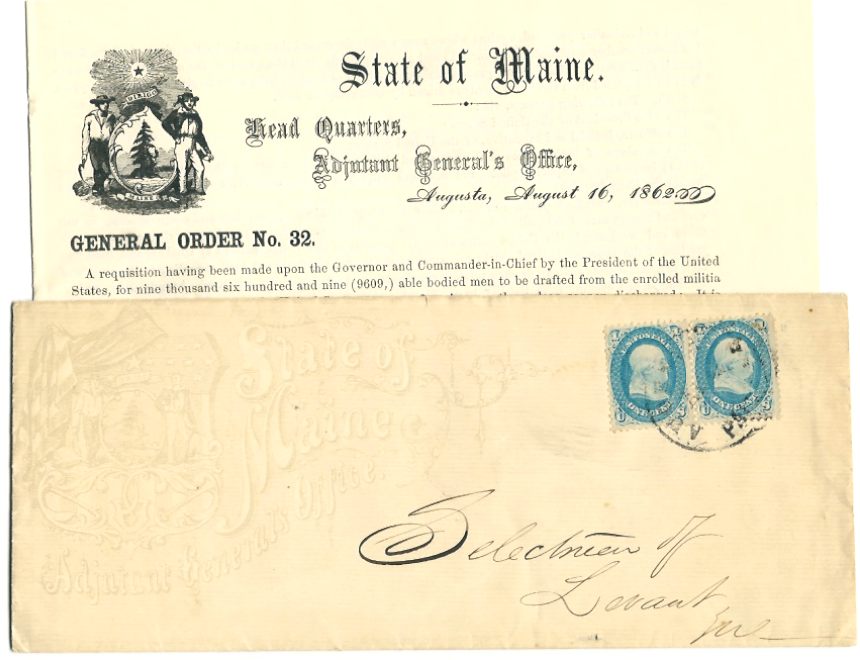 DIRIGO
MAINE
State of Maine.
Head Quarters,
Adjutant General's Office,
Augusta, August 16, 1862.
GENERAL ORDER No. 32.
A requisition having been made upon the Governor and Commander-in-Chief by the President of the United
States, for nine thousand six hundred and nine (9609,) able bodied men to be drafted from the enrolled militia
State of
Maine
Adjutant General's Office.
U.S. POSTAGE
ONE CENT
U.S. POSTAGE
ONE CENT
Selectmen of
Levant
Me